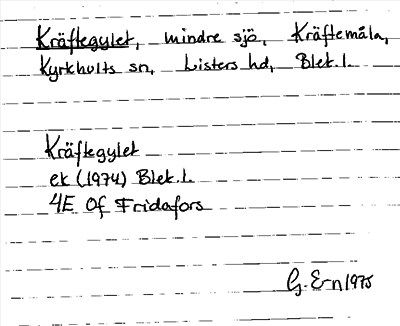 Kräftegylet, mindre sjö, Kräftemåla,
Kyrkhults sn, Listers hd, Blek.l.
Kräftegylet
ek (1974) Blek.l.
4E 0f Fridafors
G. Ern 1975